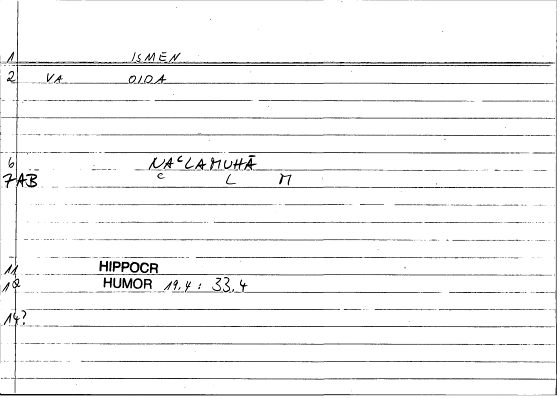 1 ISMEN
2 VA OIDA
6 NAᶜLAMUHĀ
7AB C L M
11 HIPPOCR
12 HUMOR 19.4 : 33.4
14?